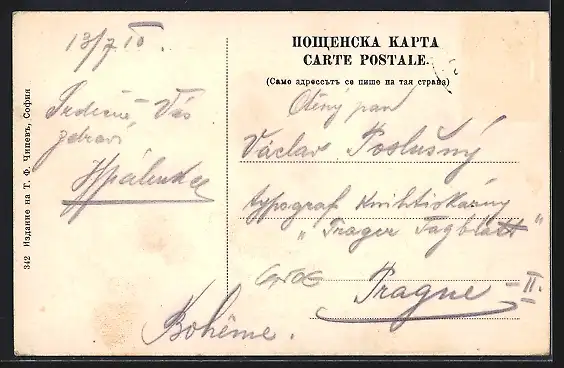 ПОЩЕНСКА КАРТА
CARTE POSTALE.
(Само адрессътъ се пише на тая страна)
13/7 10.
Srdečně Vás
zdraví
Ctěný pan
Václav Poslušný
typograf Knihtiskárny
„Prager Tagblatt"
Prague - II.
Bohême.
342 Издание на Т. Ф. Чипевъ, София